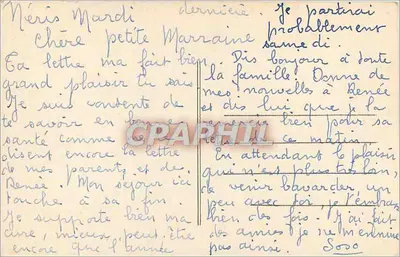 Néris Mardi
Chère petite Marraine
Ta lettre m'a fait bien
grand plaisir tu sais
Je suis contente de
te savoir en bonne
santé comme me le
disent encore la lettre
de mes parents et de
Renée. Mon séjour ici
touche à sa fin
Je supporte bien ma
cure, mieux peut être
encore que l'année
dernière. Je partirai
probablement
samedi.
Dis bonjour à toute
la famille. Donne de
mes nouvelles à Renée
et dis lui que je la
bien pour sa
ce matin.
En attendant le plaisir
qui n'est plus très loin,
de venir bavarder un
peu avec toi, je t'embrasse
bien des fois. J'ai fait
des amies je ne m'ennuie
pas ainsi. Soso
CPARPHIL